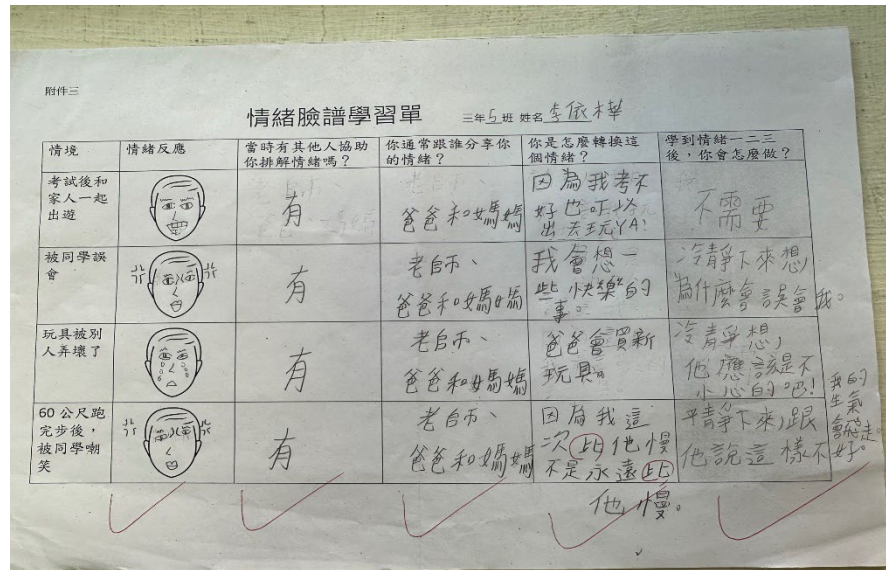 附件三
情緒臉譜學習單
三年5班 姓名李依樺
情境
情緒反應
當時有其他人協助
你排解情緒嗎？
你通常跟誰分享你
的情緒？
你是怎麼轉換這
個情緒？
學到情緒一二三
後，你會怎麼做？
考試後和
家人一起
出遊
有
爸爸和媽媽
因為我考不
好也可以
出去玩YA!
不需要
被同學誤
會
有
老師、
爸爸和媽媽
我會想一
些快樂的
事。
冷靜下來想，
為什麼會誤會我。
玩具被別
人弄壞了
有
老師、
爸爸和媽媽
爸爸會買新
玩具。
冷靜想，
他應該是不
小心的吧!
60公尺跑
完步後，
被同學嘲
笑
有
老師、
爸爸和媽媽
因為我這
次比他慢
不是永遠比
他慢。
平靜下來，跟
他說這樣不好。
我的
生氣
會飛走。